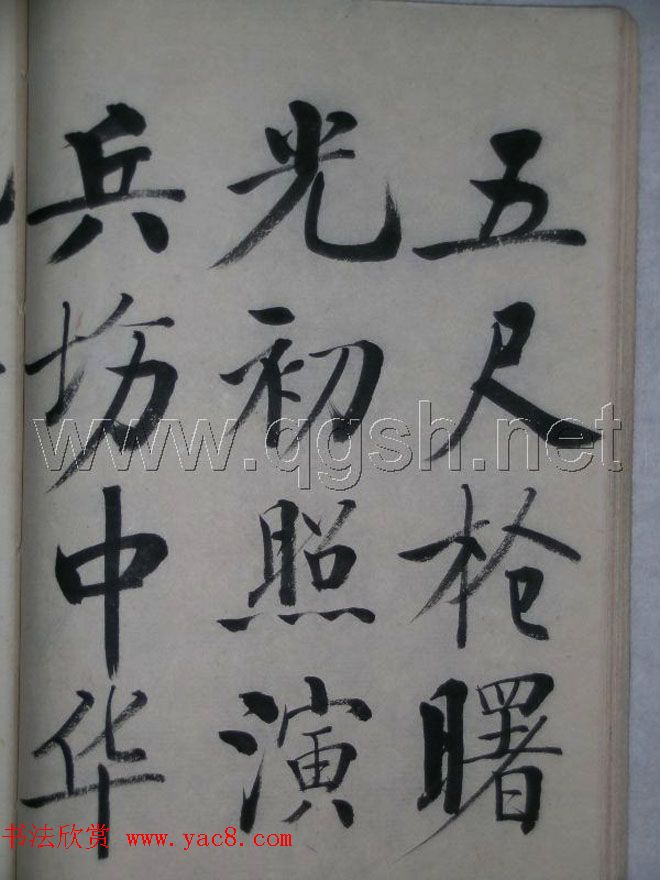 五尺枪曙
光初照演
兵场中华
www.qgsh.net
书法欣赏 www.yac8.com